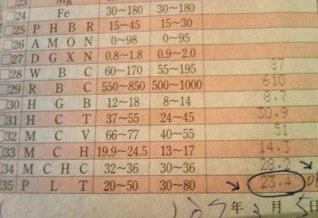 23 Mg
24 Fe 30~180 30~180
25 P H B R 15~45 15~30
26 A M O N 0~98 0~95
27 D G X N 0.8~1.8 0.9~2.0
28 W B C 60~170 55~195 87
29 R B C 550~850 500~1000 610
30 H G B 12~18 8~14 8.7
31 H C T 37~55 24~45 30.9
32 M C V 66~77 40~55 51
33 M C H 19.9~24.5 13~17 14.3
34 M C H C 32~36 30~36 28.2
35 P L T 20~50 30~80 23.4
年 月 日